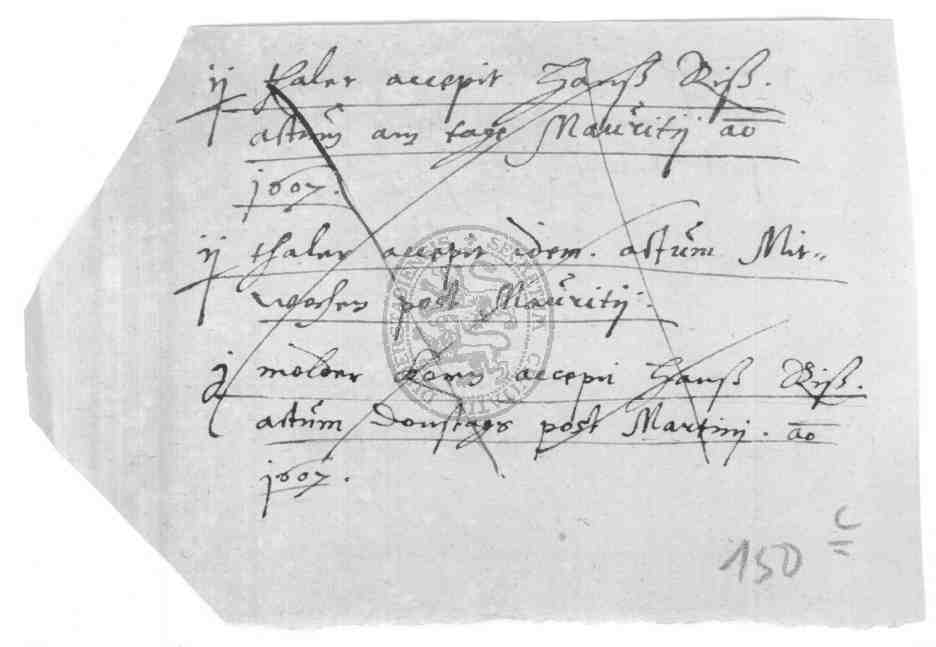 ij thaler accepit Hanß Riß.
actum am tage Mauritij ao
1607.
ij thaler accepit idem. actum Mit„
wochen post Mauritij.
j molder Korn accepi Hanß Riß.
actum Donstags post Martinj. ao
1607.
150 c